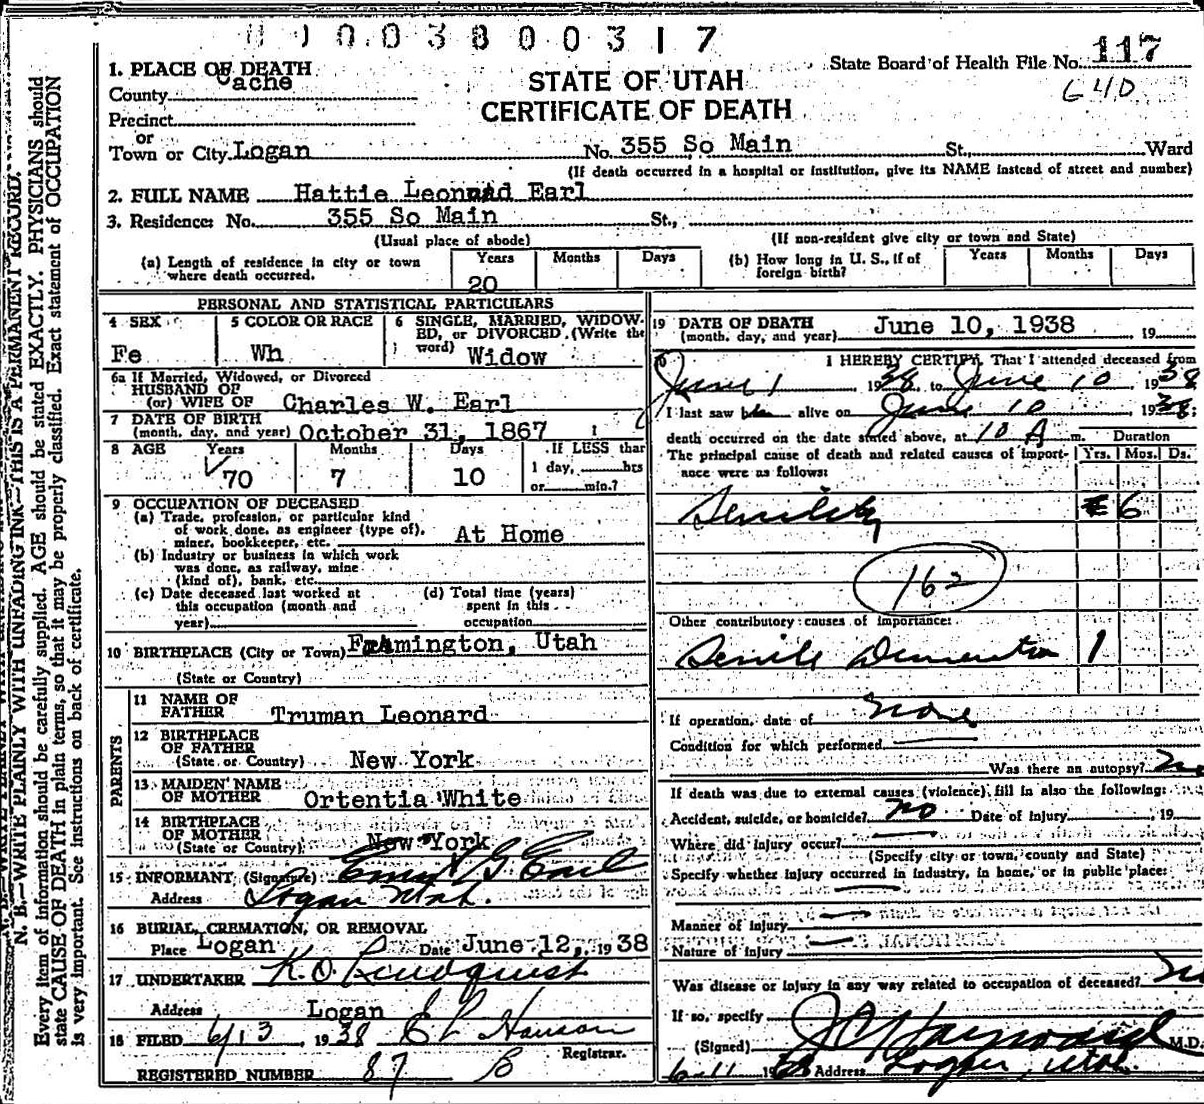 003800317
State Board of Health File No. 117
G40
1. PLACE OF DEATH
County Cache
STATE OF UTAH
CERTIFICATE OF DEATH
Precinct
or
Town or City Logan No. 355 So Main St., Ward
(If death occurred in a hospital or institution, give its NAME instead of street and number)
2. FULL NAME Hattie Leonard Earl
3. Residence: No. 355 So Main St.,
(Usual place of abode) (If non-resident give city or town and State)
(a) Length of residence in city or town where death occurred. Years 20 Months Days
(b) How long in U. S., if of foreign birth? Years Months Days
PERSONAL AND STATISTICAL PARTICULARS
4 SEX Fe
5 COLOR OR RACE Wh
6 SINGLE, MARRIED, WIDOWED, or DIVORCED (Write the word) Widow
6a If Married, Widowed, or Divorced
HUSBAND OF
(or) WIFE OF Charles W. Earl
7 DATE OF BIRTH
(month, day, and year) October 31, 1867
8 AGE Years 70 Months 7 Days 10 If LESS than 1 day, hrs or min.?
9 OCCUPATION OF DECEASED
(a) Trade, profession, or particular kind
of work done, as engineer (type of),
miner, bookkeeper, etc. At Home
(b) Industry or business in which work
was done, as railway, mine
(kind of), bank, etc.
(c) Date deceased last worked at
this occupation (month and
year)
(d) Total time (years)
spent in this
occupation
10 BIRTHPLACE (City or Town) Framington, Utah
(State or Country)
PARENTS
11 NAME OF FATHER Truman Leonard
12 BIRTHPLACE OF FATHER
(State or Country) New York
13 MAIDEN NAME OF MOTHER Ortentia White
14 BIRTHPLACE OF MOTHER
(State or Country) New York
15 INFORMANT (Signature) G Earl
Address Logan Utah.
16 BURIAL, CREMATION, OR REMOVAL
Place Logan Date June 12, 1938
17 UNDERTAKER K. O. Lindquist
Address Logan
18 FILED 6/13, 1938 Hanson
Registrar.
REGISTERED NUMBER 87 B
19 DATE OF DEATH
(month, day, and year) June 10, 1938 19
20 I HEREBY CERTIFY, That I attended deceased from
June 1 1938 to June 10 1938
I last saw alive on June 10 1938
death occurred on the date stated above, at 10 A m. Duration
The principal cause of death and related causes of importance were as follows: Yrs. Mos. Ds.
Senility 6
162
Other contributory causes of importance:
Senile Dementia 1
If operation, date of none
Condition for which performed
Was there an autopsy? no
If death was due to external causes (violence), fill in also the following:
Accident, suicide, or homicide? no Date of injury , 19
Where did injury occur?
(Specify city or town, county and State)
Specify whether injury occurred in industry, in home, or in public place:
Manner of injury
Nature of injury
Was disease or injury in any way related to occupation of deceased? no
If so, specify
(Signed) J C Hayward M.D.
6-11 1938 Address Logan, Utah.
N. B.—WRITE PLAINLY WITH UNFADING INK—THIS IS A PERMANENT RECORD.
Every item of information should be carefully supplied. AGE should be stated EXACTLY. PHYSICIANS should
state CAUSE OF DEATH in plain terms, so that it may be properly classified. Exact statement of OCCUPATION
is very important. See instructions on back of certificate.